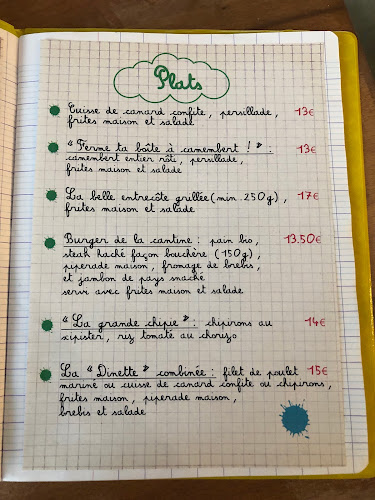 Plats
Cuisse de canard confite, persillade, 13€
frites maison et salade
"Ferme ta boîte à camembert !" : 13€
camembert entier rôti, persillade,
frites maison et salade
La belle entrecôte grillée (min. 250g), 17€
frites maison et salade
Burger de la cantine : pain bio, 13.50€
steak haché façon bouchère (150g),
piperade maison, fromage de brebis,
et jambon de pays snacké
servi avec frites maison et salade
"La grande chipie" : chipirons au 14€
xipister, riz tomaté au chorizo
La "Dinette" combinée : filet de poulet 15€
mariné ou cuisse de canard confite ou chipirons,
frites maison, piperade maison,
brebis et salade